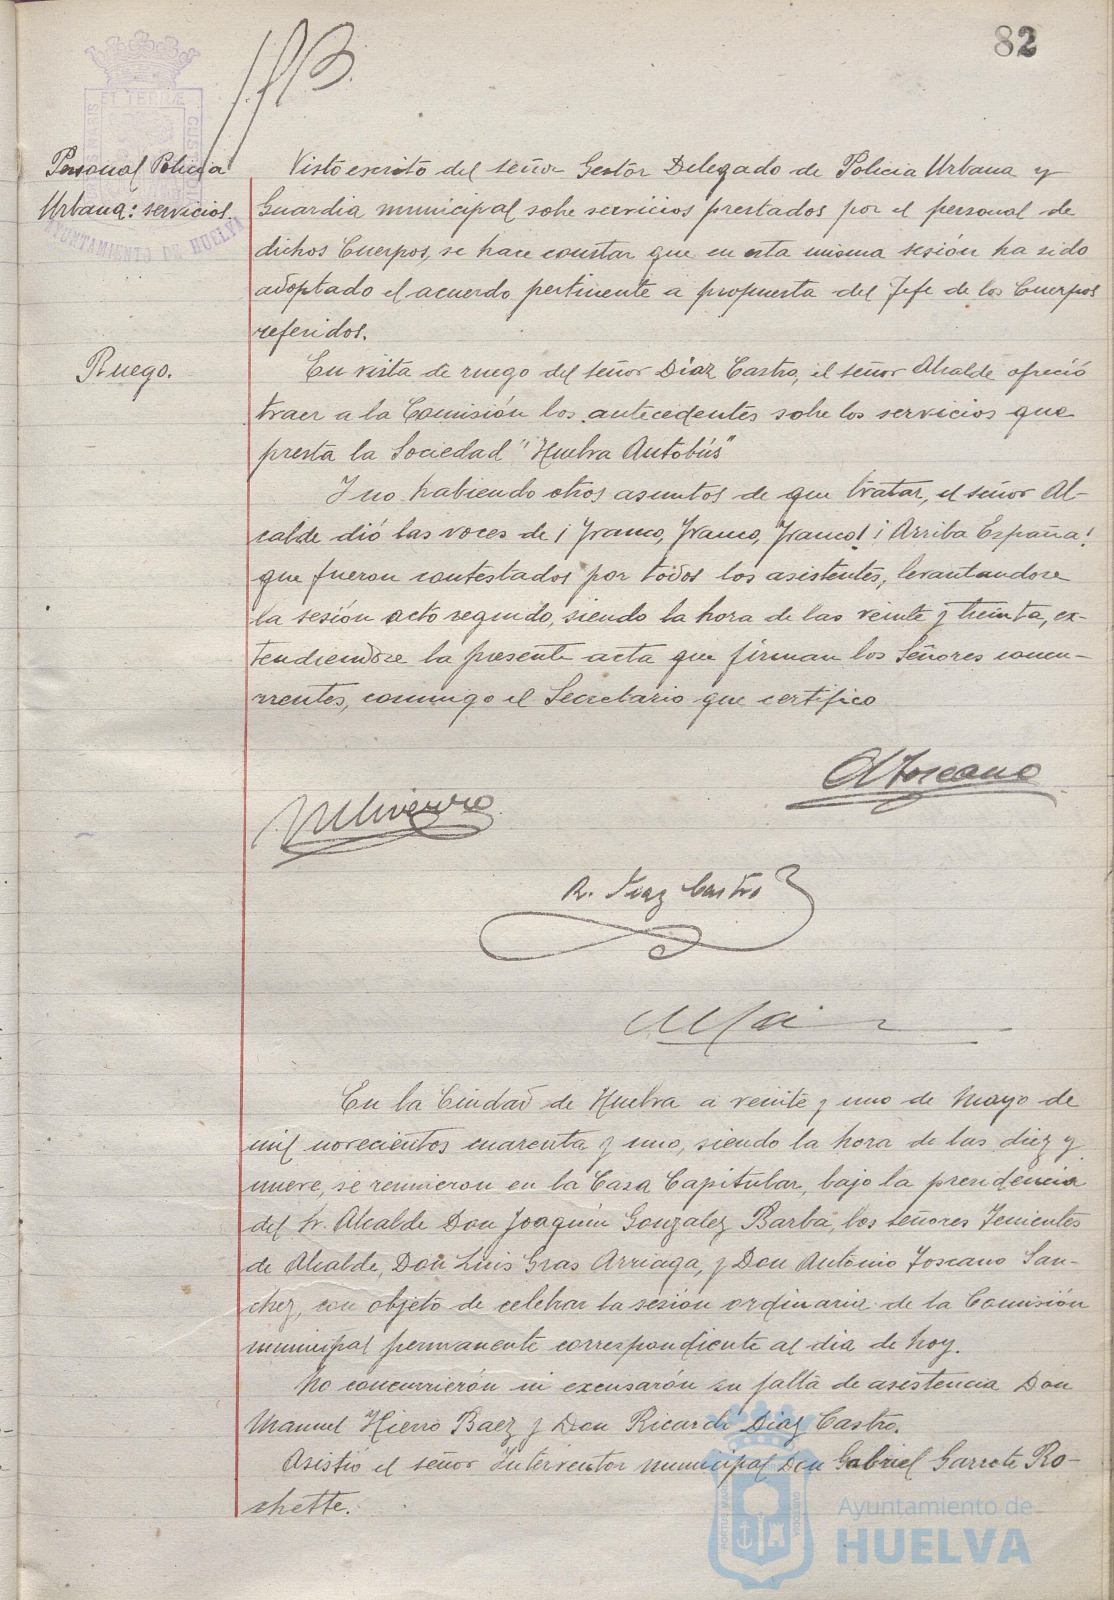 82
Personal Policia
Urbana: servicios.
AYUNTAMIENTO DE HUELVA
Visto escrito del señor Gestor Delegado de Policia Urbana y
Guardia municipal sobre servicios prestados por el personal de
dichos Cuerpos, se hace constar que en esta misma sesión ha sido
adoptado el acuerdo pertinente a propuesta del Jefe de los Cuerpos
referidos.
Ruego.
En vista de ruego del señor Diaz Castro, el señor Alcalde ofreció
traer a la Comisión los antecedentes sobre los servicios que
presta la Sociedad "Huelva Autobús"
Y no habiendo otros asuntos de que tratar, el señor Al-
calde dió las voces de ¡Franco, Franco, Franco! ¡Arriba España!
que fueron contestados por todos los asistentes, levantandose
la sesión acto seguido, siendo la hora de las veinte y treinta, ex-
tendiendose la presente acta que firman los Señores concu-
rrentes, conmigo el Secretario que certifico
A Toscano
R. Diaz Castro
En la Ciudad de Huelva a veinte y uno de Mayo de
mil novecientos cuarenta y uno, siendo la hora de las diez y
nueve, se reunieron en la Casa Capitular, bajo la presidencia
del Sr. Alcalde Don Joaquín Gonzalez Barba, los señores Tenientes
de Alcalde, Don Luis Gras Arriaga, y Don Antonio Toscano San-
chez, con objeto de celebrar la sesión ordinaria de la Comisión
municipal permanente correspondiente al dia de hoy.
No concurrierón ni excusarón su falta de asistencia Don
Manuel Hierro Baez y Don Ricardo Diaz Castro.
Asistió el señor Interventor municipal Don Gabriel Garrote Ro-
chette.
Ayuntamiento de
HUELVA